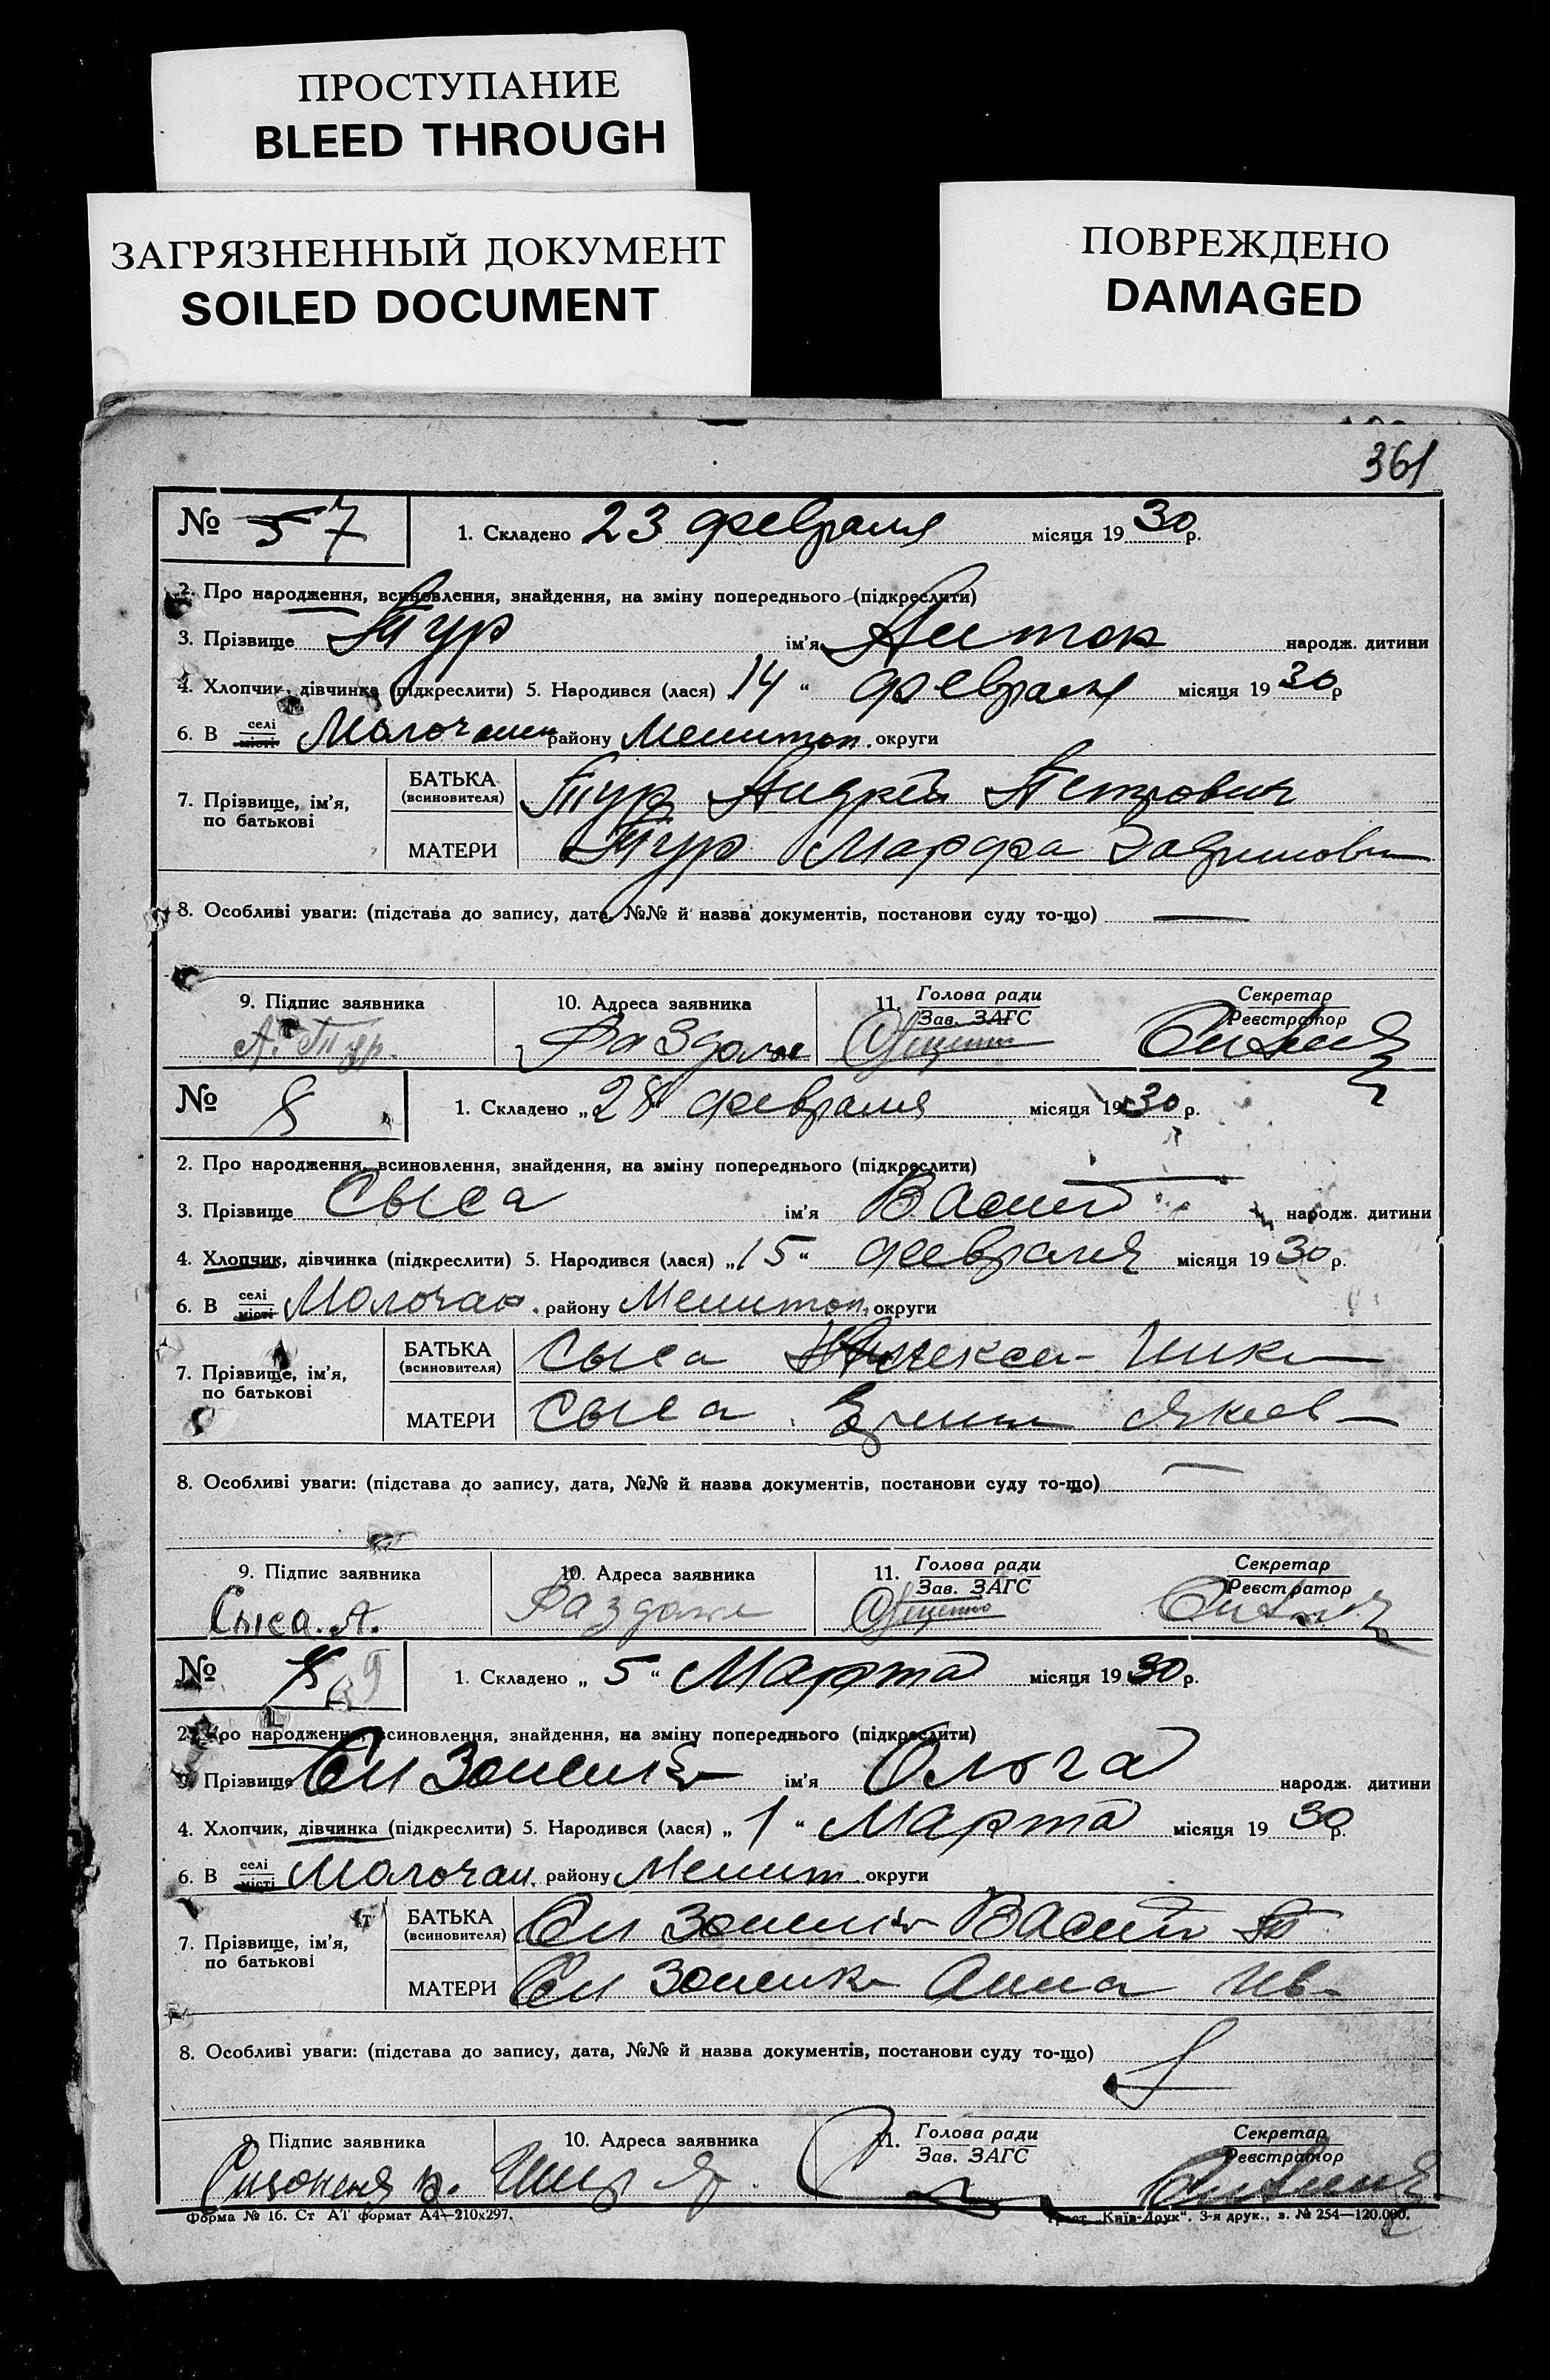 ПРОСТУПАНИЕ
BLEED THROUGH
ЗАГРЯЗНЕННЫЙ ДОКУМЕНТ
SOILED DOCUMENT
ПОВРЕЖДЕНО
DAMAGED
361
№ 7
1. Складено 23 февраля місяця 1930 р.
2. Про народження, всиновлення, знайдення, на зміну попереднього (підкреслити)
3. Прізвище Тур ім'я Антон народж. дитини
4. Хлопчик, дівчинка (підкреслити) 5. Народився (лася) 14 " февраля місяця 1930 р
6. В селі місті Молочан району Мелитоп. округи
7. Прізвище, ім'я, по батькові
БАТЬКА (всиновителя) Тур Андрей Петрович
МАТЕРИ Тур Марфа
8. Особливі уваги: (підстава до запису, дата, №№ й назва документів, постанови суду то-що) —
9. Підпис заявника
10. Адреса заявника
11. Голова ради
Зав. ЗАГС
Секретар
Реєстратор
А. Тур.
Раздолье
№ 8
1. Складено „28" февраля місяця 1930 р.
2. Про народження, всиновлення, знайдення, на зміну попереднього (підкреслити)
3. Прізвище Сыса ім'я Васил народж. дитини
4. Хлопчик, дівчинка (підкреслити) 5. Народився (лася) „15" февраля місяця 1930 р.
6. В селі місті Молочан. району Мелитоп. округи
7. Прізвище, ім'я, по батькові
БАТЬКА (всиновителя) Сыса Алексей
МАТЕРИ Сыса
8. Особливі уваги: (підстава до запису, дата, №№ й назва документів, постанови суду то-що) —
9. Підпис заявника
10. Адреса заявника
11. Голова ради
Зав. ЗАГС
Секретар
Реєстратор
Сыса. А.
Раздолье
№ 9
1. Складено „5" Марта місяця 1930 р.
2. Про народження, всиновлення, знайдення, на зміну попереднього (підкреслити)
3. Прізвище ім'я Ольга народж. дитини
4. Хлопчик, дівчинка (підкреслити) 5. Народився (лася) „1" Марта місяця 1930 р.
6. В селі місті Молочан. району Мелит округи
7. Прізвище, ім'я, по батькові
БАТЬКА (всиновителя) Васил
МАТЕРИ Анна Ив-
8. Особливі уваги: (підстава до запису, дата, №№ й назва документів, постанови суду то-що)
9. Підпис заявника
10. Адреса заявника
11. Голова ради
Зав. ЗАГС
Секретар
Реєстратор
Форма № 16. Ст АТ формат А4—210х297.
Трест „Київ-Друк". 3-я друк., з. № 254—120.000.